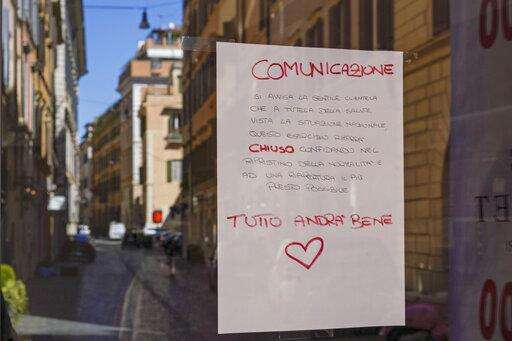 COMUNICAZIONE
SI AVVISA LA GENTILE CLIENTELA
CHE A TUTELA DELLA SALUTE
VISTA LA SITUAZIONE NAZIONALE,
QUESTO ESERCIZIO RIMARRÀ
CHIUSO CONFIDANDO NEL
RIPRISTINO DELLA NORMALITA' E
AD UNA RIAPERTURA IL PIÙ
PRESTO POSSIBILE
TUTTO ANDRA' BENE